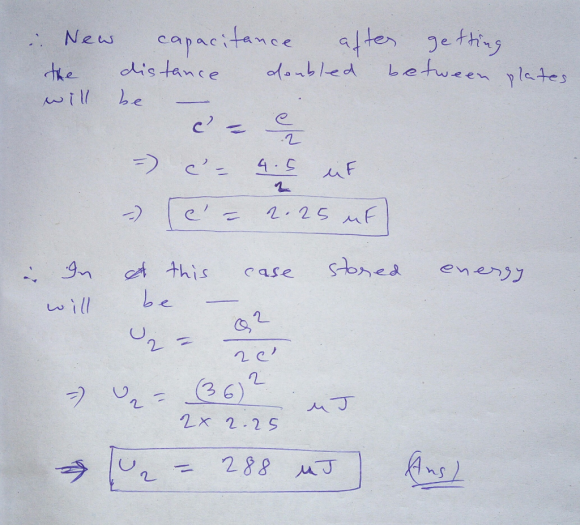 ∴ New capacitance after getting
the distance doubled between plates
will be —
c' = c/2
=> c' = 4.5/2 μF
=> c' = 2.25 μF
∴ In this case stored energy
will be —
U₂ = Q²/2c'
=> U₂ = (36)²/2×2.25 μJ
=> U₂ = 288 μJ (Ans)